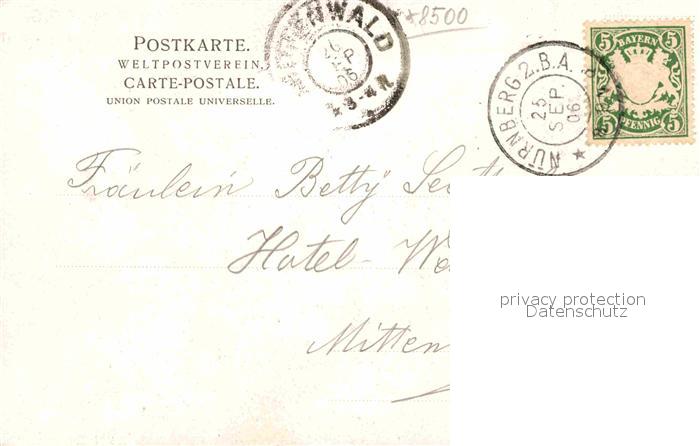 POSTKARTE.
WELTPOSTVEREIN.
CARTE-POSTALE.
UNION POSTALE UNIVERSELLE.
MITTENWALD
26
SEP
06
8500
NÜRNBERG 2.B.A.
25
SEP.
06
5 5
BAYERN
PFENNIG
5 5
Fräulein Betty
Hotel
Mitten
privacy protection
Datenschutz